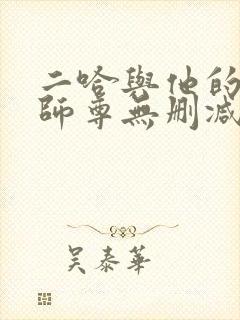 二哈與他的
師尊無刪減
吴泰華